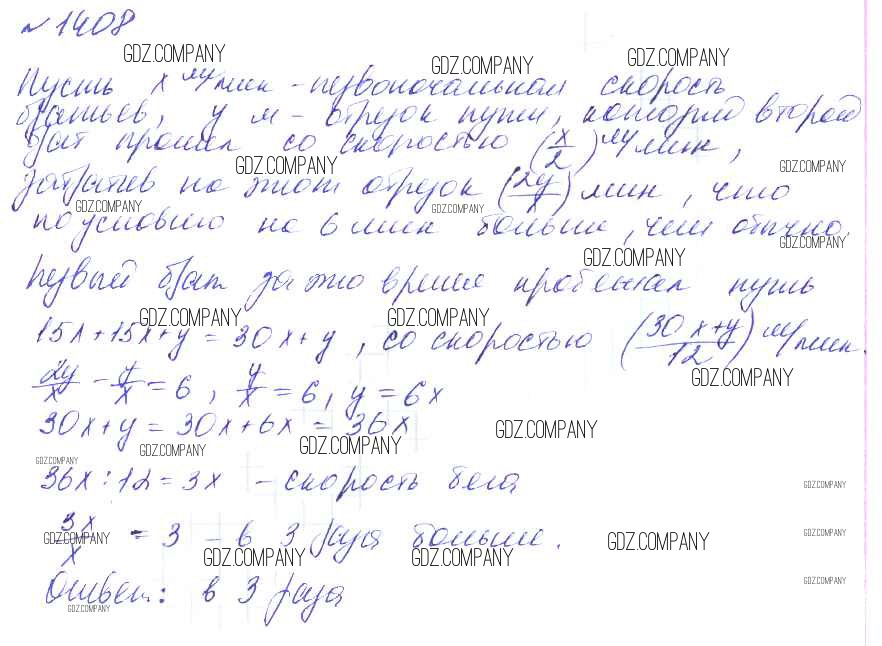 № 1408
GDZ.COMPANY GDZ.COMPANY GDZ.COMPANY
Пусть x м/мин - первоначальная скорость
братьев, y м - отрезок пути, который второй
брат прошел со скоростью (x/2) м/мин,
GDZ.COMPANY GDZ.COMPANY
затратив на этот отрезок (2y/x) мин, что
GDZ.COMPANY GDZ.COMPANY
по условию на 6 мин больше, чем обычно.
GDZ.COMPANY
GDZ.COMPANY
Первый брат за это время пробежал путь
GDZ.COMPANY GDZ.COMPANY
15x + 15x + y = 30x + y, со скоростью (30x+y/12) м/мин.
GDZ.COMPANY
2y/x - y/x = 6, y/x = 6, y = 6x
30x + y = 30x + 6x = 36x
GDZ.COMPANY GDZ.COMPANY GDZ.COMPANY
GDZ.COMPANY
36x : 12 = 3x - скорость бега
GDZ.COMPANY
3x/x = 3 - в 3 раза больше.
GDZ.COMPANY GDZ.COMPANY GDZ.COMPANY
GDZ.COMPANY GDZ.COMPANY
Ответ: в 3 раза
GDZ.COMPANY
GDZ.COMPANY